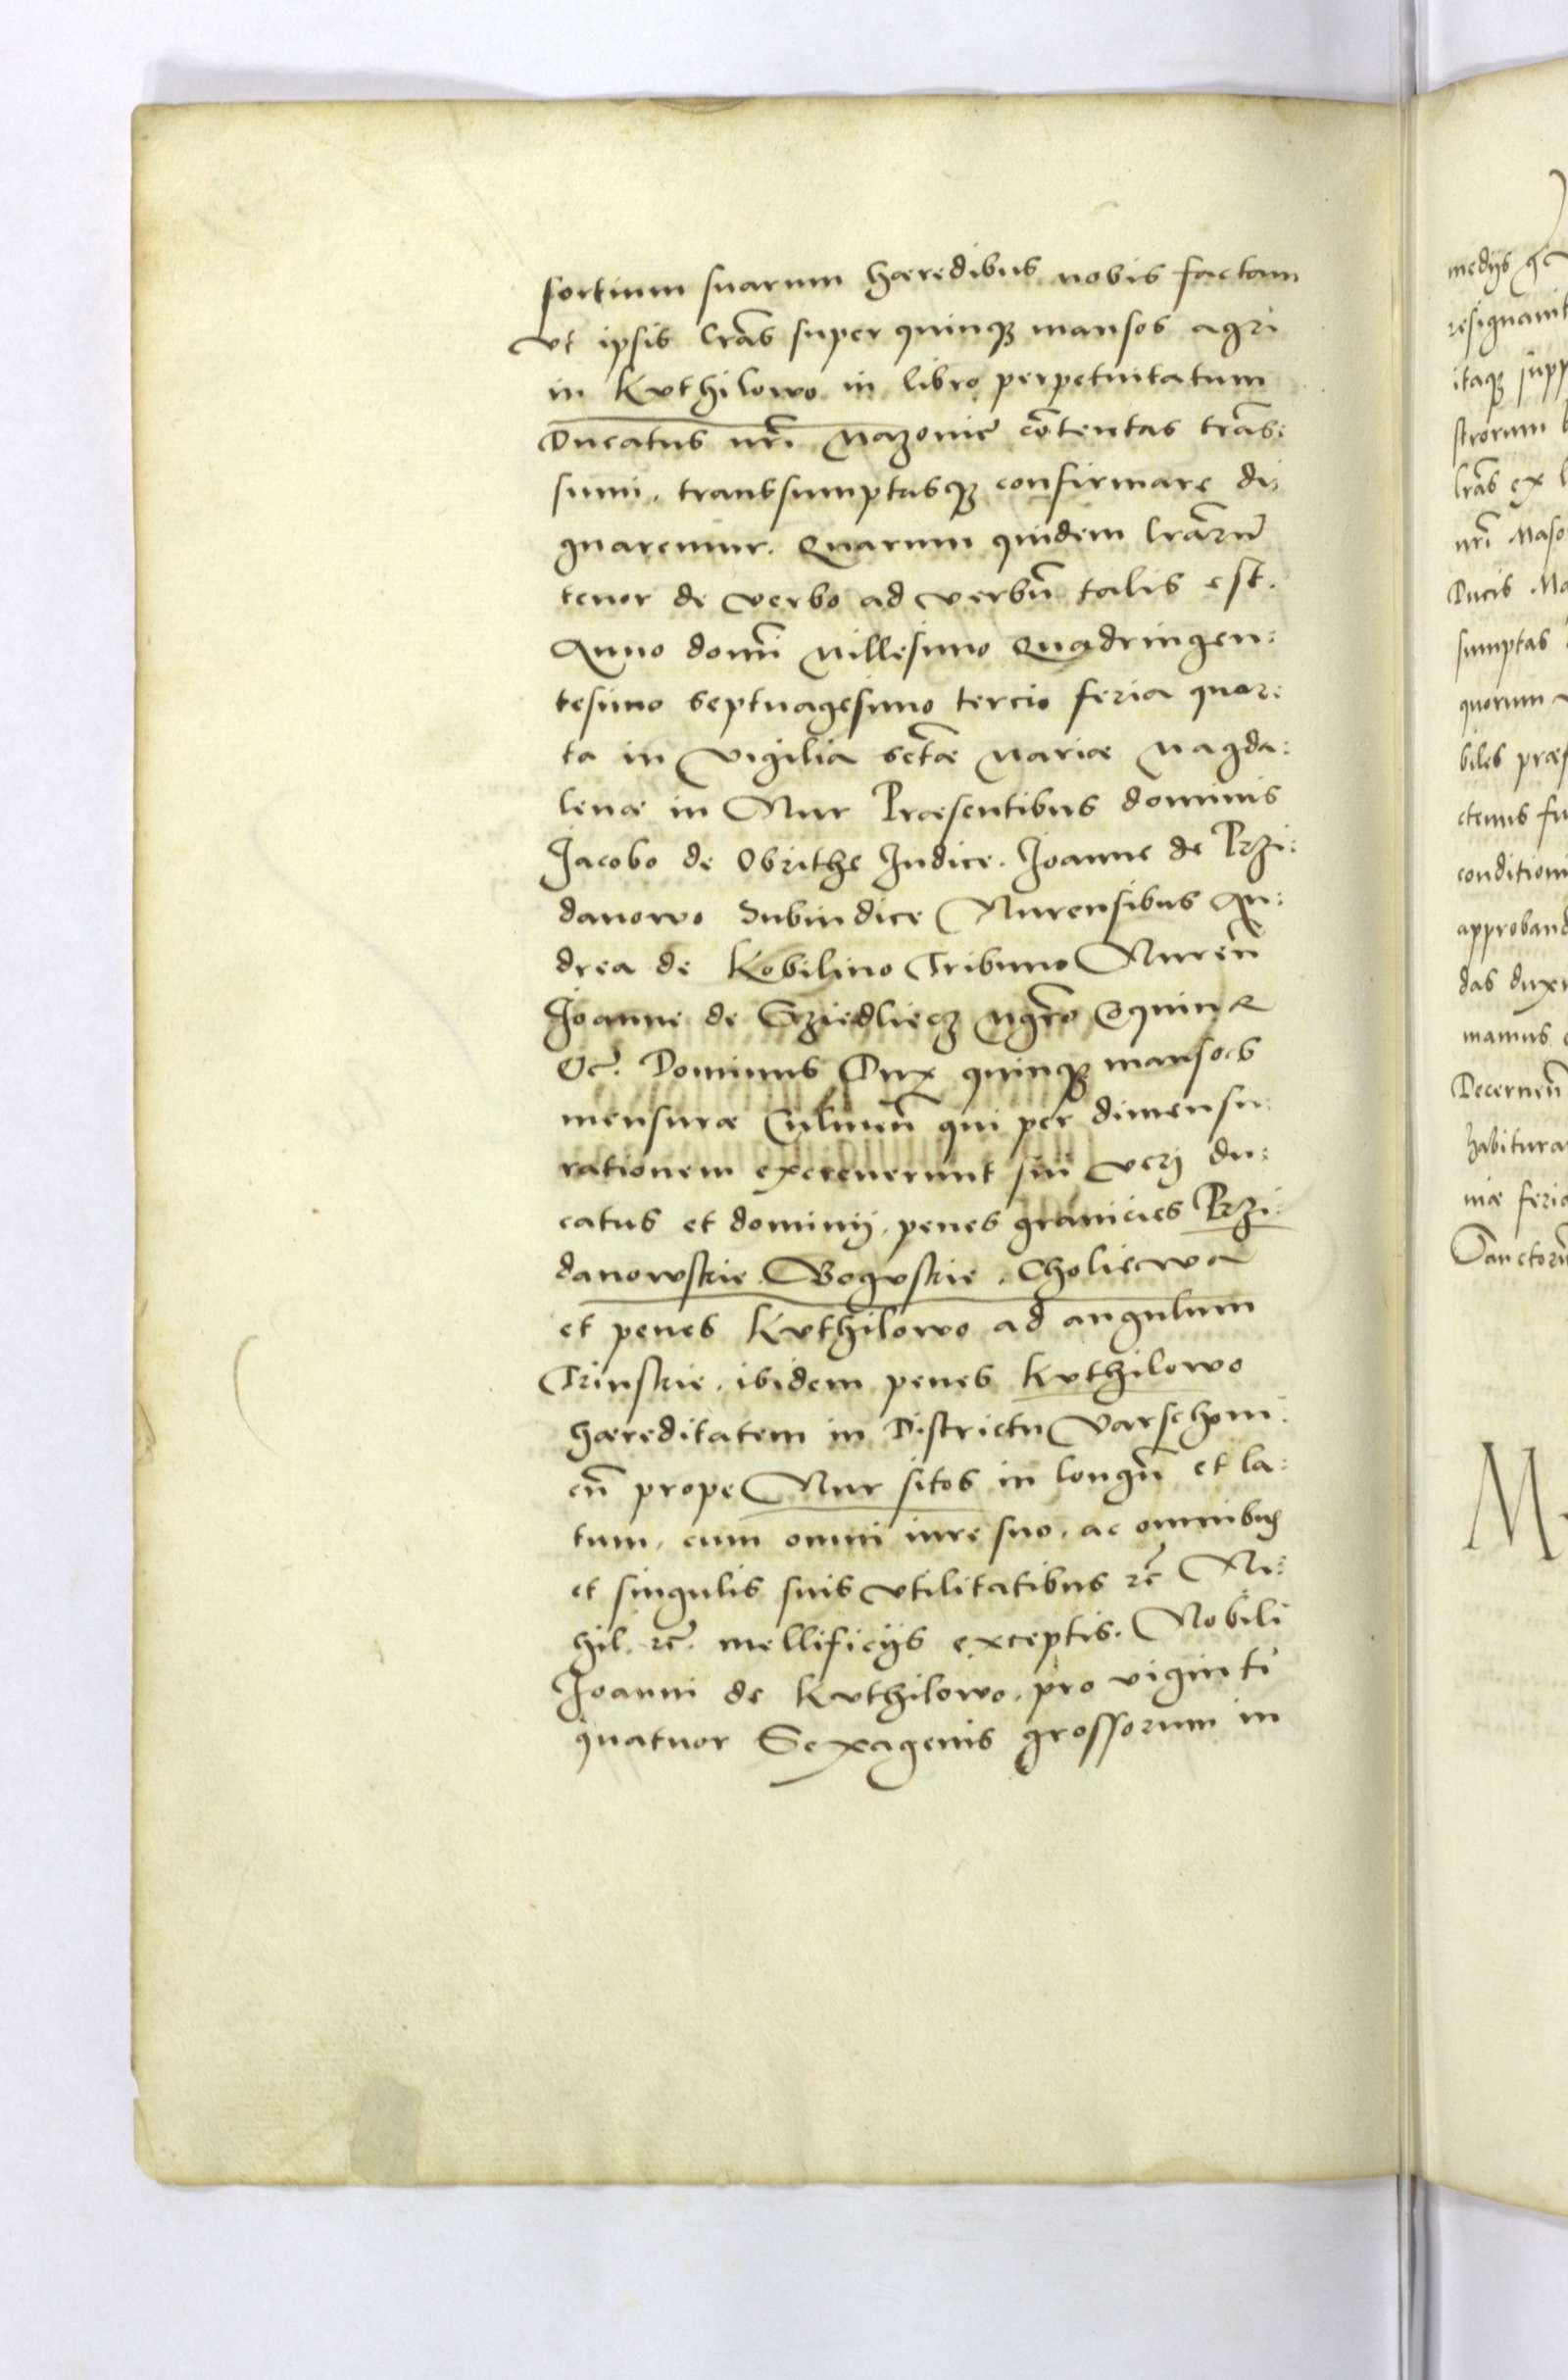 sortium suarum hæredibus nobis factam
vt ipsis lrãs super quinqꝫ mansos agri
in Kuthilowo in libro perpetuitatum
Ducatus nrĩ Mazoniẽ cõtentas trãs:
sumi, transsumptasqꝫ confirmare di:
gnaremur. Quarum quidem lrãrũ
tenor de verbo ad verbũ talis est.
Anno domĩ Millesimo Quadringen:
tesimo septuagesimo tercio feria quar:
ta in vigilia sctæ Mariæ Magda:
lenæ in Nur Præsentibus dominis
Jacobo de Obrithe Judice. Joanne de Przi:
danowo Subiudice Nurensibus An:
drea de Kobilino Tribuno Nureñ
Joanne de Srziedliecz mgro Coquinæ
&c̃. Dominus Dux quinqꝫ mansos
mensuræ Culmeñ qui per dimensu:
rationem excreuerunt sui veri du:
catus et dominij, penes granicies Przi:
danowskie. Boguskie. Choliewa
et penes Kuthilowo ad angulum
Trinskie, ibidem penes Kuthilowo
hæreditatem in Districtu Varschoui:
eñ prope Nur sitos in longũ et la:
tum, cum omni iure suo, ac omnibus
et singulis suis vtilitatibus ꝛc̃ Ni:
hil. ꝛc̃. mellificijs exceptis. Nobili
Joanni de Kuthilowo, pro viginti
quatuor Sexagenis grossorum in
medijs
resignauit
itaqꝫ supp
strorum
lrãs ex
nrĩ Maso
Ducis Ma
sumptas
quorum
biles præs
ctenus fu
conditioni
approband
das duxi
mamus
Decerneñ
habitura
niæ feria
Sanctorũ
M